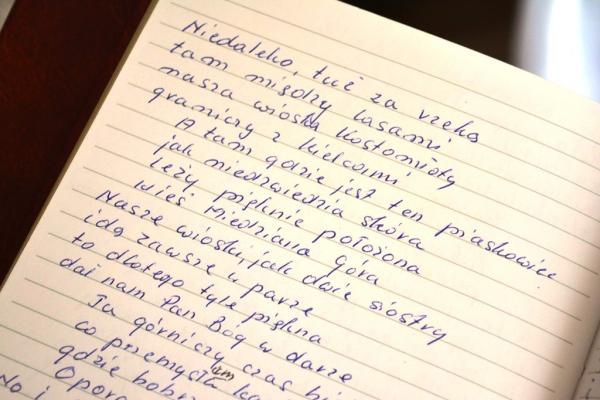 Niedaleko, tuż za rzeką
tam między lasami
nasza wioska Kostomłoty
graniczy z Kielcami
A tam gdzie jest ten piaskowiec
jak niedźwiednia skóra
leży pięknie położona
wieś Miedziana Góra
Nasze wioski, jak dwie siostry
idą zawsze w parze
to dlatego tyle piękna
dał nam Pan Bóg w darze
Ta górniczy czas
co przemysłem
gdzie
No i